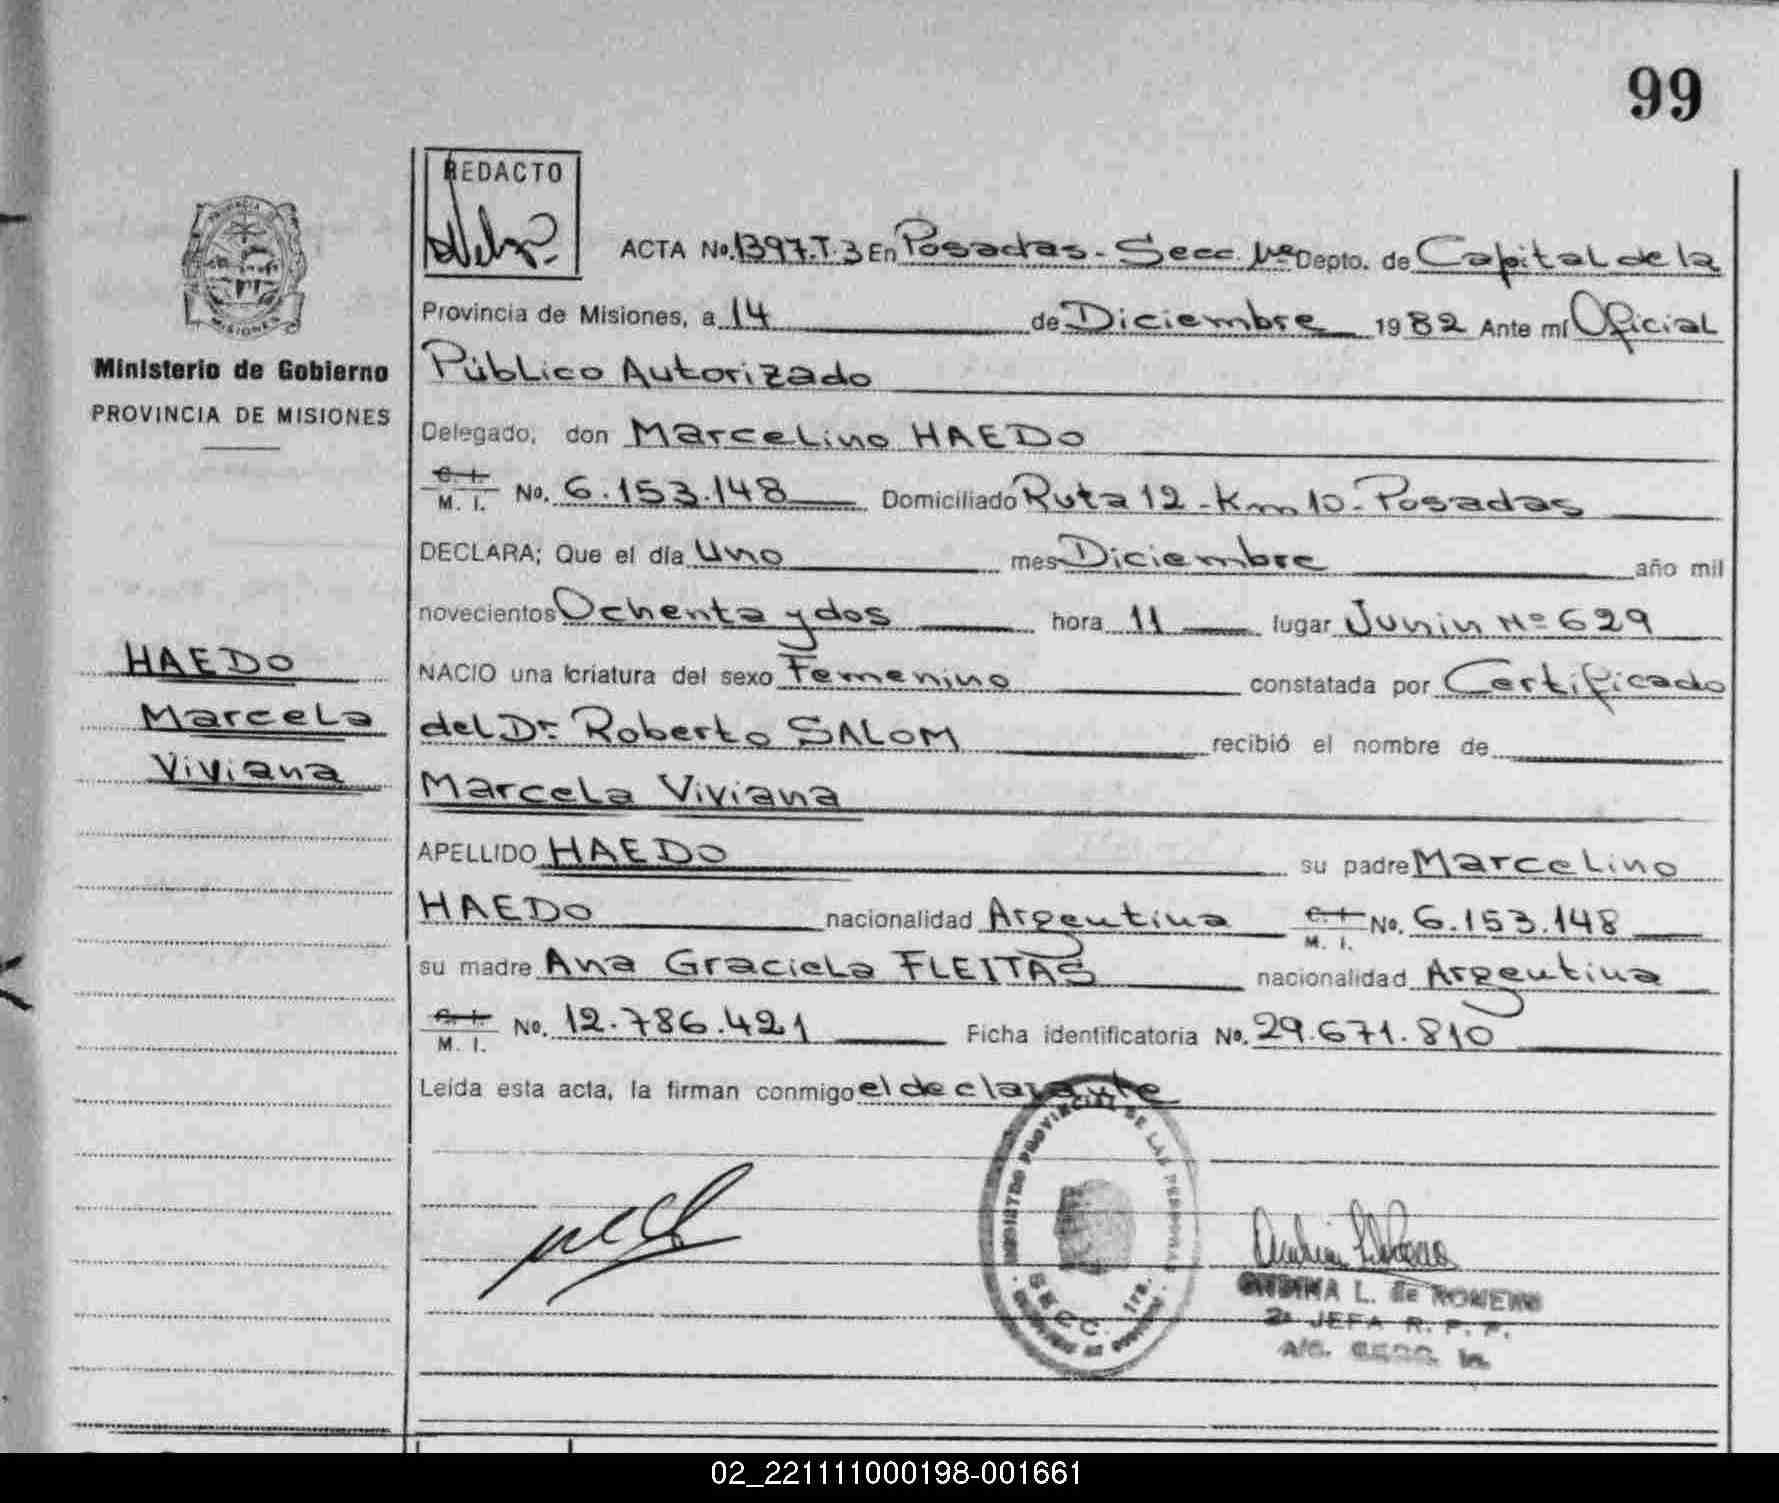 99
REDACTO
PROVINCIA DE
MISIONES
Ministerio de Gobierno
PROVINCIA DE MISIONES
HAEDO
Marcela
Viviana
ACTA No. 1397.T.3 En Posadas - Secc. 1ra Depto. de Capital de la
Provincia de Misiones, a 14 de Diciembre 1982 Ante mí Oficial
Público Autorizado
Delegado, don Marcelino HAEDO
C. I.
M. I. No. 6.153.148 Domiciliado Ruta 12 - Km 10 - Posadas
DECLARA; Que el día Uno mes Diciembre año mil
novecientos Ochenta y dos hora 11 lugar Junin Nº 629
NACIO una criatura del sexo Femenino constatada por Certificado
del Dr. Roberto SALOM recibió el nombre de
Marcela Viviana
APELLIDO HAEDO su padre Marcelino
HAEDO nacionalidad Argentina C. I. M. I. No. 6.153.148
su madre Ana Graciela FLEITAS nacionalidad Argentina
C. I.
M. I. No. 12.786.421 Ficha identificatoria No. 29.671.810
Leída esta acta, la firman conmigo el declarante
REGISTRO PROVINCIAL DE LAS PERSONAS
SECC. 1ra.
L. de ROMERO
2a JEFA R. P. P.
A/C. SECC. 1a.
02_221111000198-001661